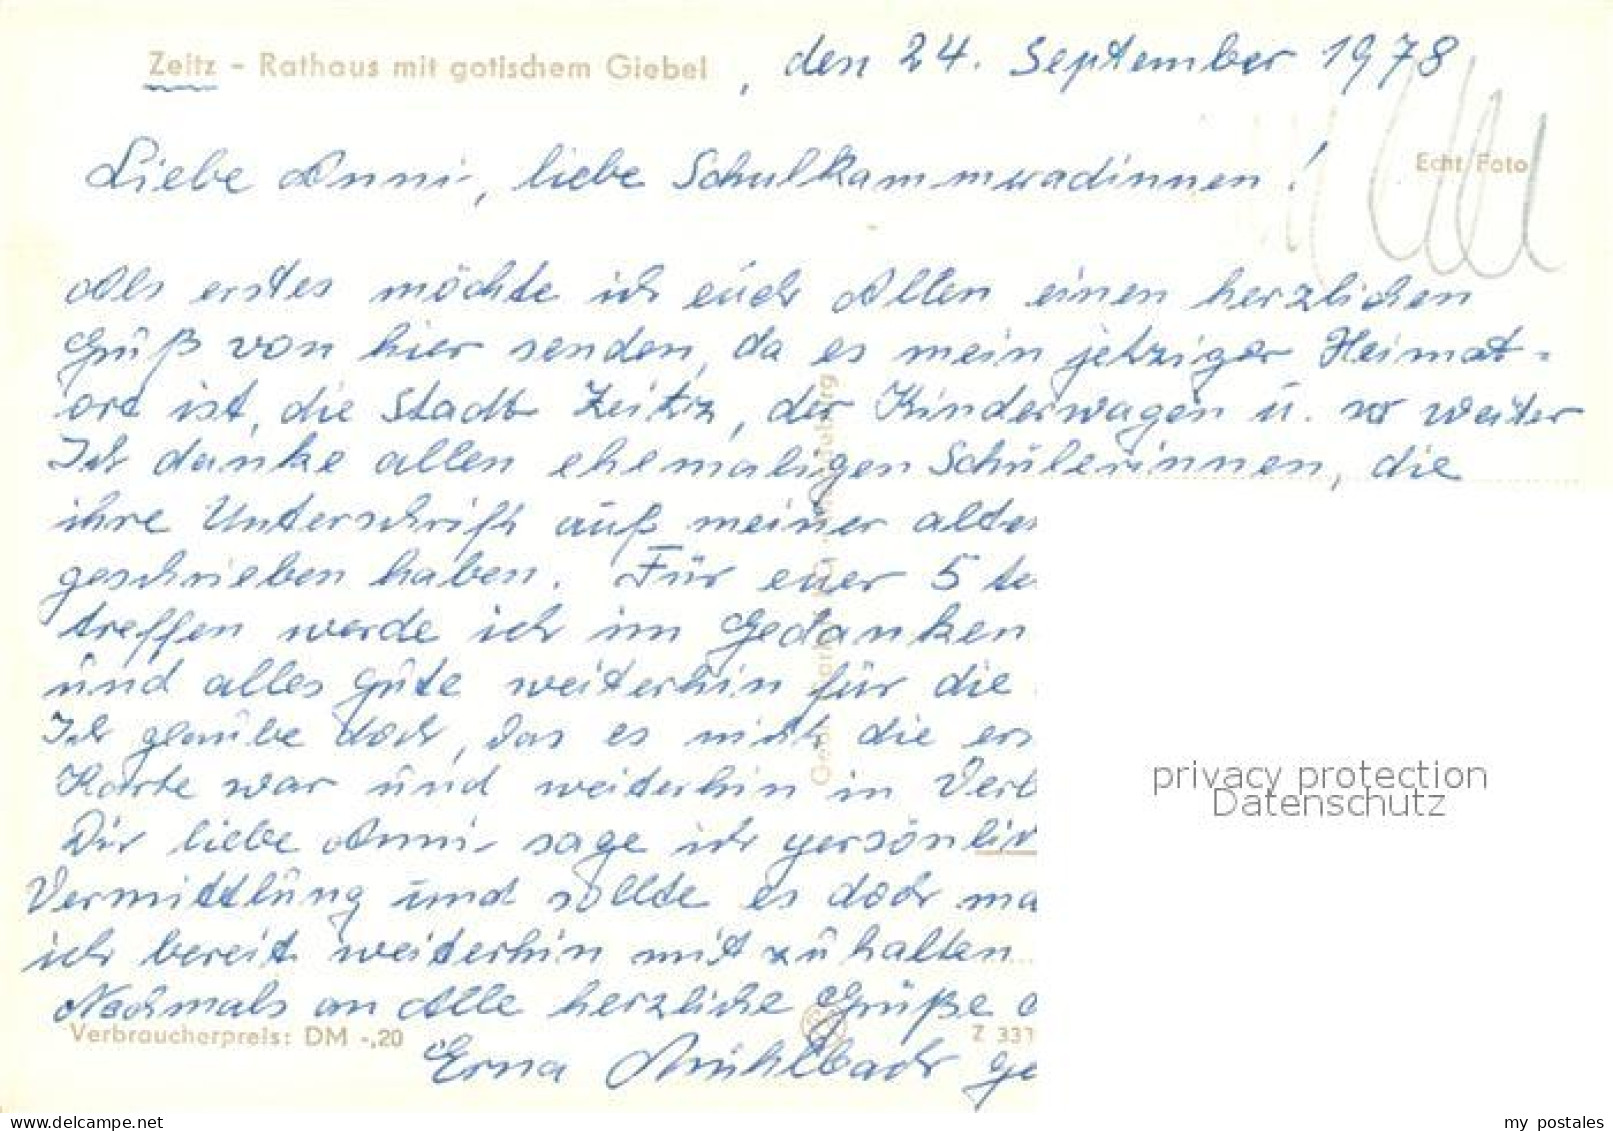 Zeitz - Rathaus mit gotischem Giebel
, den 24. September 1978
Echt Foto
Liebe Anni, liebe Schulkammeradinnen!
Als erstes möchte ich euch Allen einen herzlichen
Gruß von hier senden, da es mein jetziger Heimat-
ort ist, die Stadt Zeitz, der Kinderwagen u. so weiter
Ich danke allen ehemaligen Schülerinnen, die
ihre Unterschrift auf meiner alte
geschrieben haben. Für euer 5 te
treffen werde ich im Gedanken
und alles Gute weiterhin für die
Ich glaube doch, das es nicht die ers
Karte war und weiterhin in Verb
Dir liebe Anni sage ich persönlich
Vermittlung und sollte es doch ma
ich bereit weiterhin mit zu halten
Nochmals an Alle herzliche Grüße
Verbraucherpreis: DM -,20
Z 331
Erna Mühlbach ge
privacy protection
Datenschutz
my postales